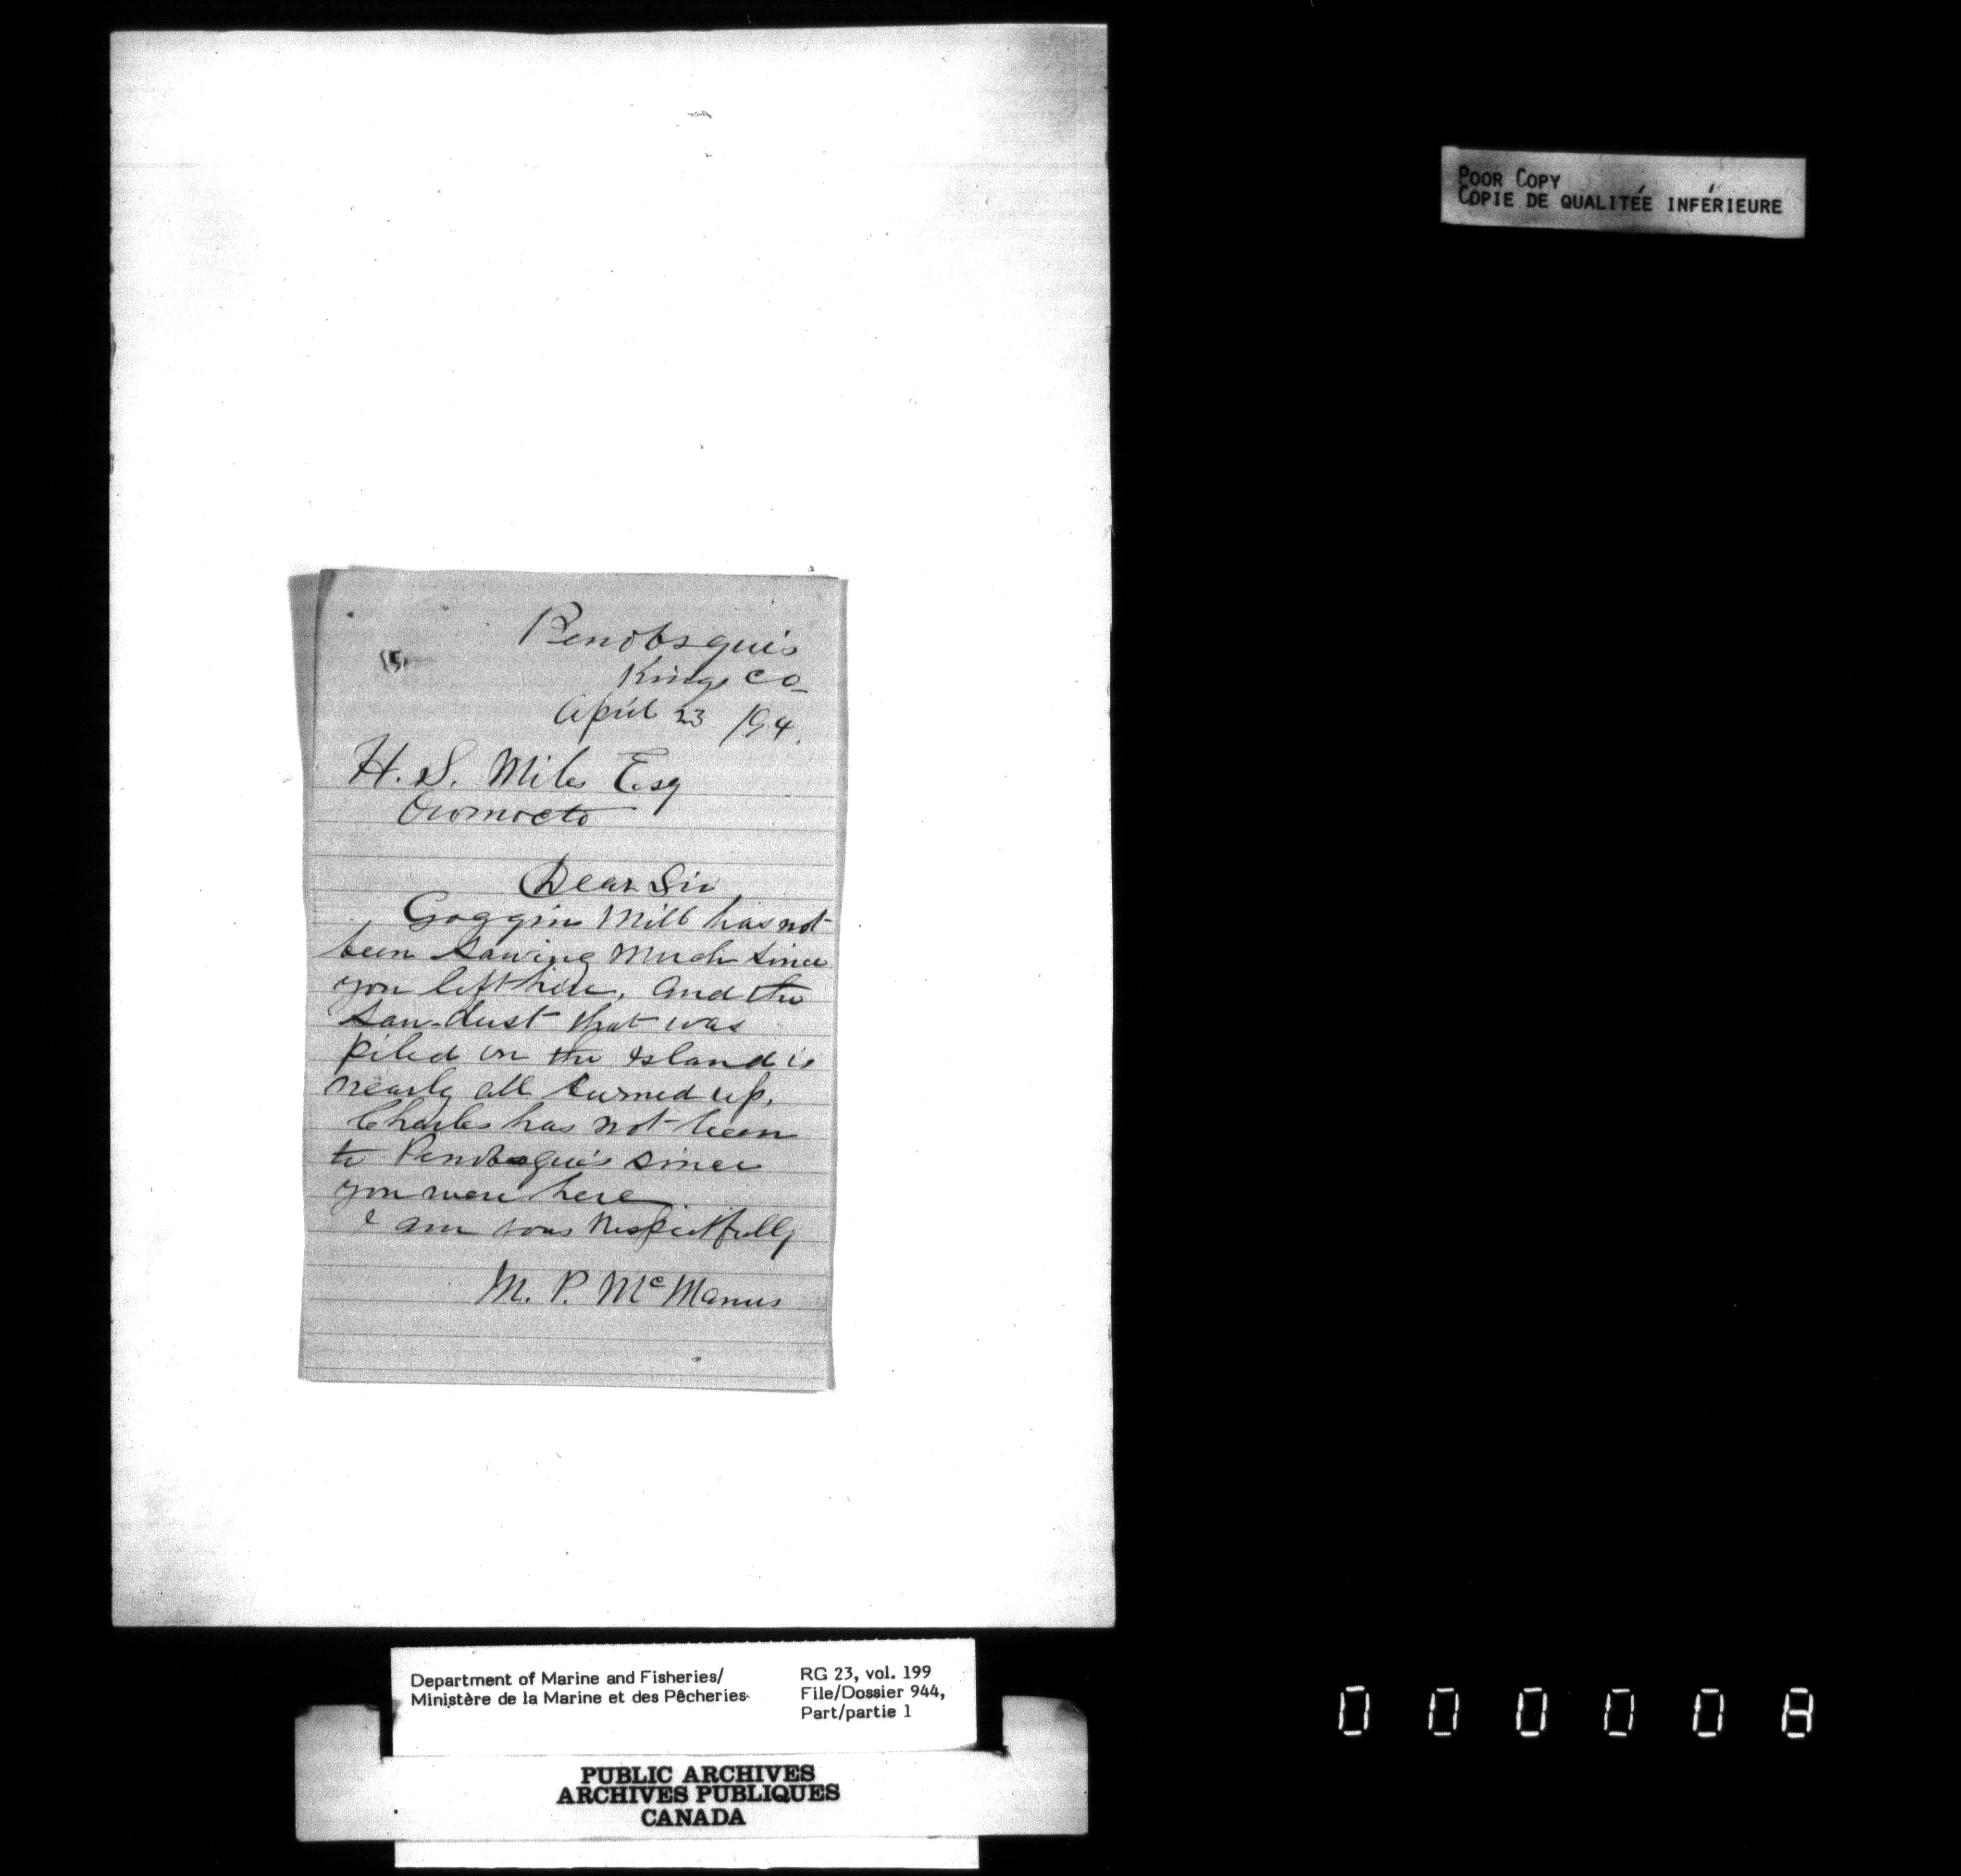 POOR COPY
COPIE DE QUALITÉE INFÉRIEURE
Penobsquis
Kings Co
April 23 /94.
H. S. Miles Esq
Oromocto
Dear Sir
Goggin Mill has not
been Sawing Much Since
you left here, and the
Saw-dust that was
piled on the Island is
nearly all burned up,
Charles has not been
to Penobsquis since
you were here
I am yous Respectfully
M. P. McManus
Department of Marine and Fisheries/
Ministère de la Marine et des Pêcheries
RG 23, vol. 199
File/Dossier 944,
Part/partie 1
PUBLIC ARCHIVES
ARCHIVES PUBLIQUES
CANADA
000008